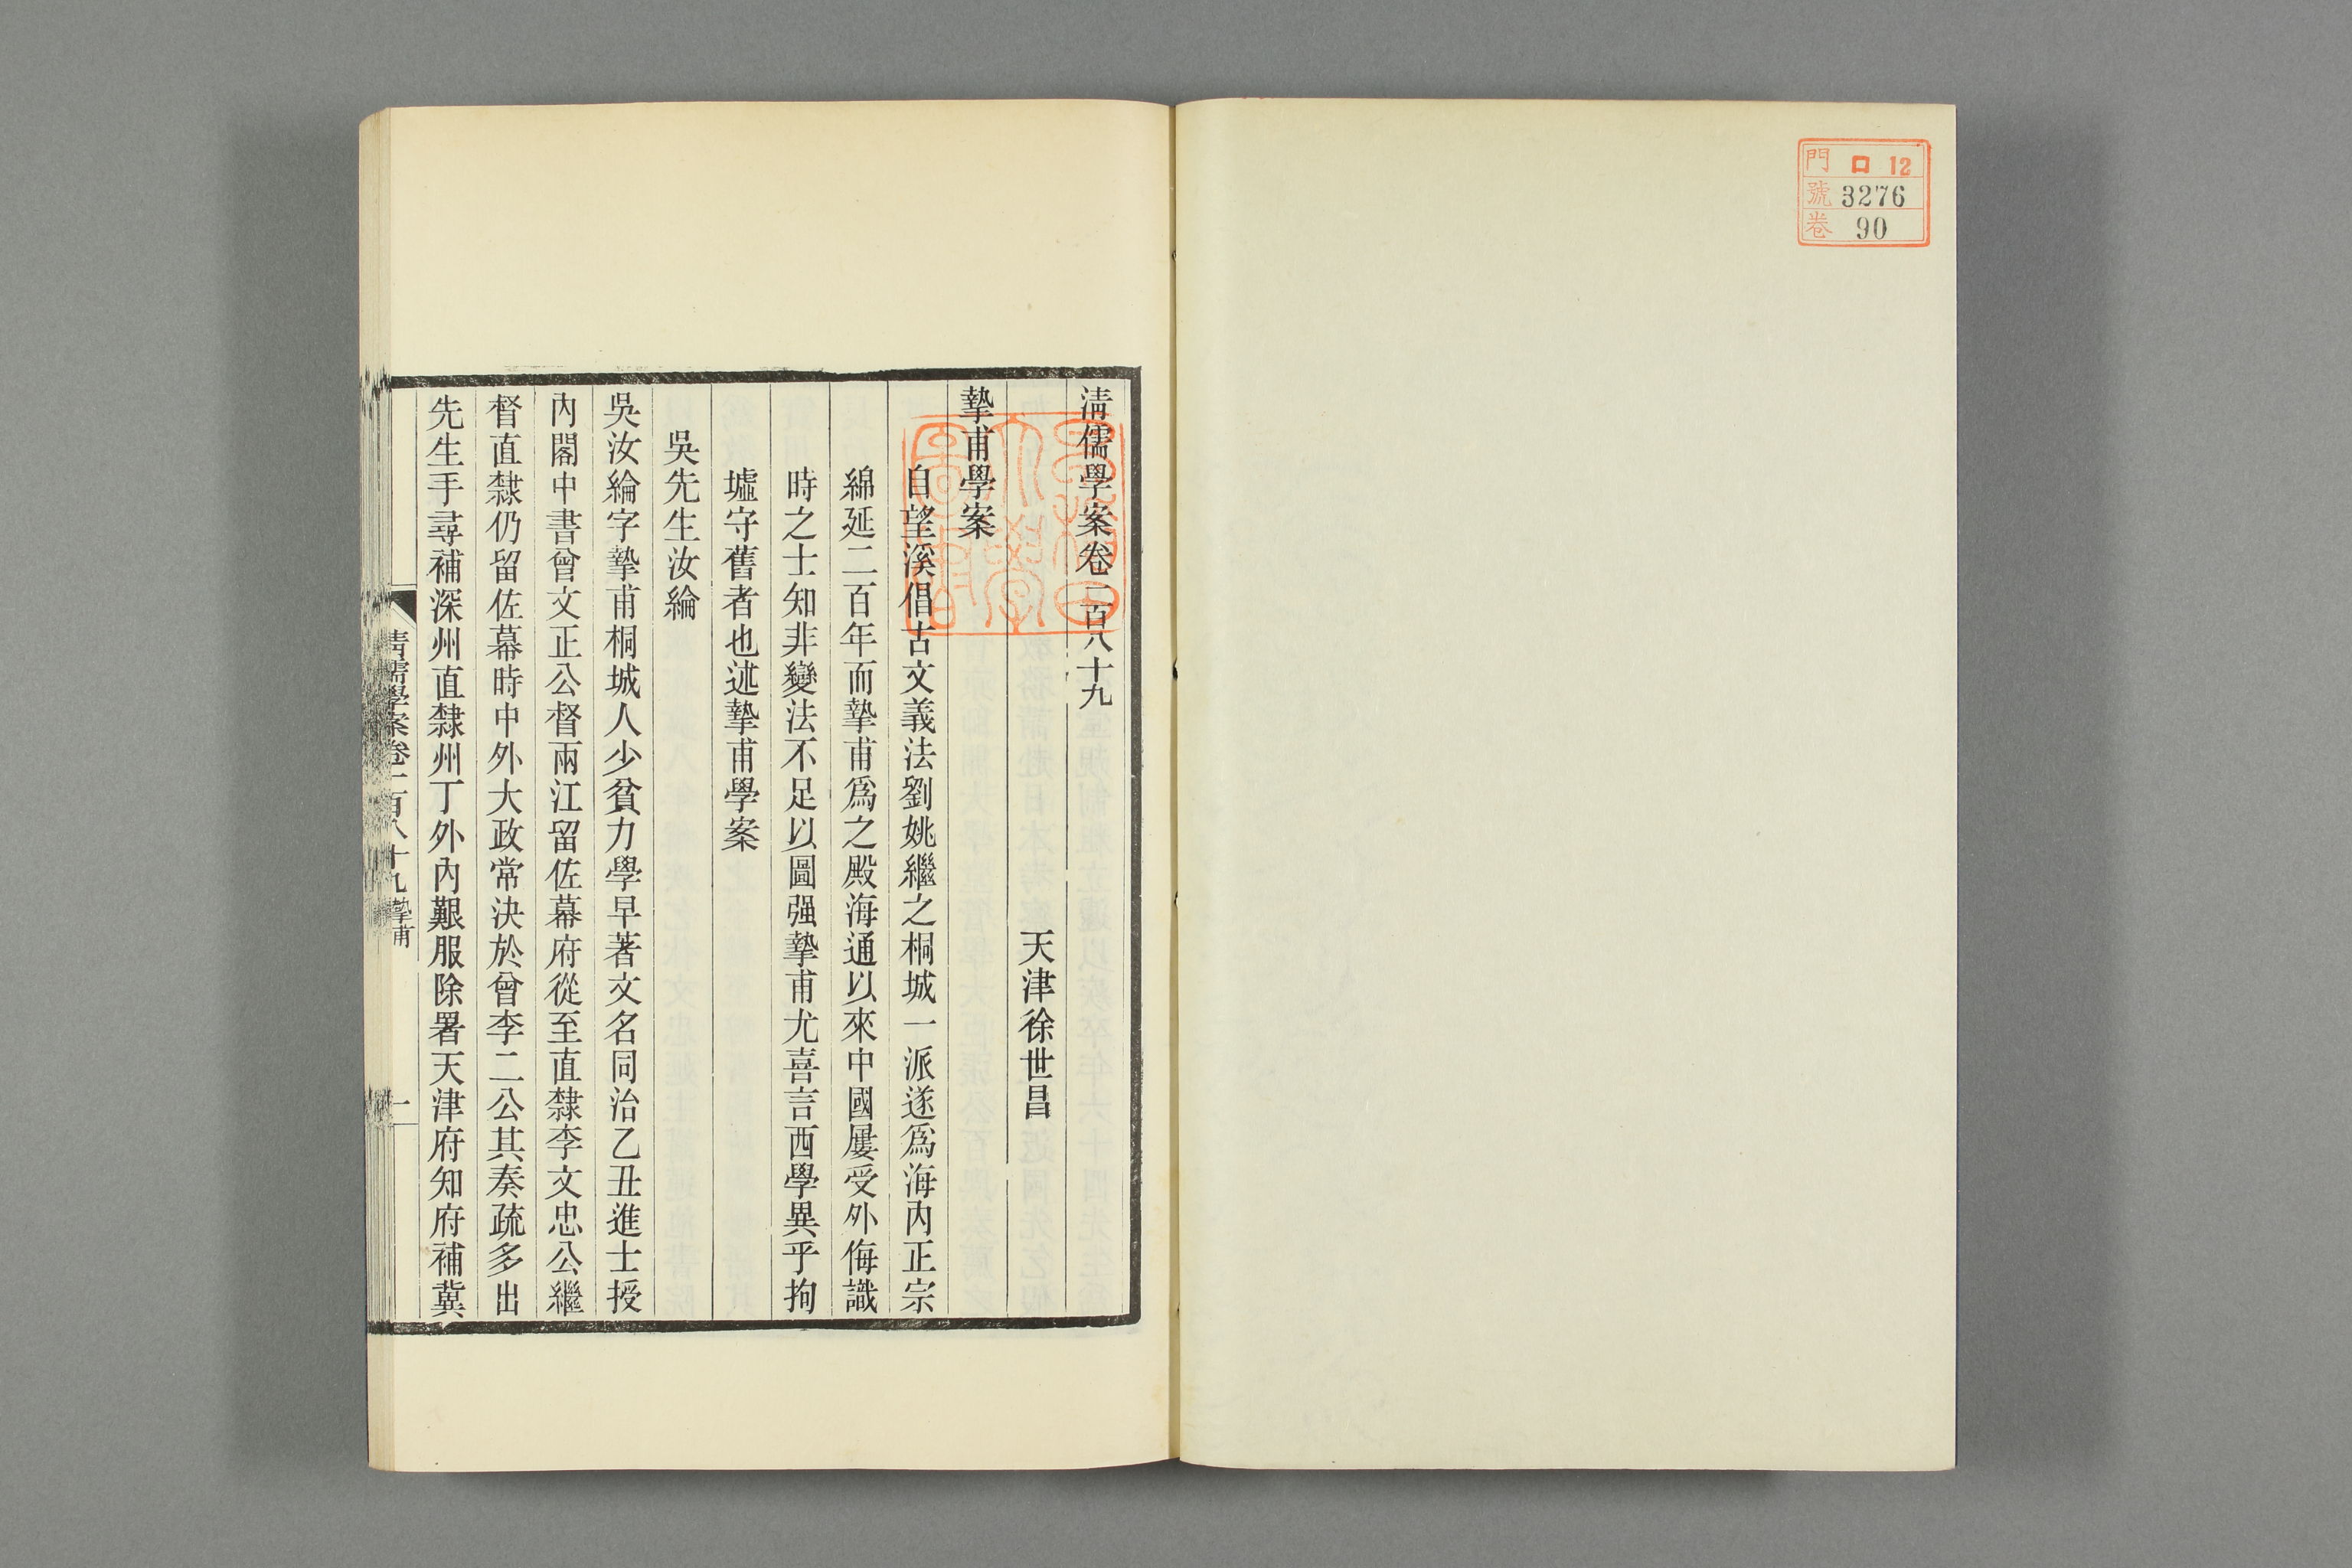 門 ロ 12
號 3276
卷 90
清儒學案卷一百八十九
天津徐世昌
摯甫學案
自望溪倡古文義法劉姚繼之桐城一派遂爲海內正宗
綿延二百年而摯甫爲之殿海通以來中國屢受外侮識
時之士知非變法不足以圖强摯甫尤喜言西學異乎拘
墟守舊者也述摯甫學案
吳先生汝綸
吳汝綸字摯甫桐城人少貧力學早著文名同治乙丑進士授
內閣中書曾文正公督兩江留佐幕府從至直隸李文忠公繼
督直隸仍留佐幕時中外大政常決於曾李二公其奏疏多出
先生手尋補深州直隸州丁外內艱服除署天津府知府補冀
清儒學案卷一百八十九 摯甫
一
早稻田大學圖書